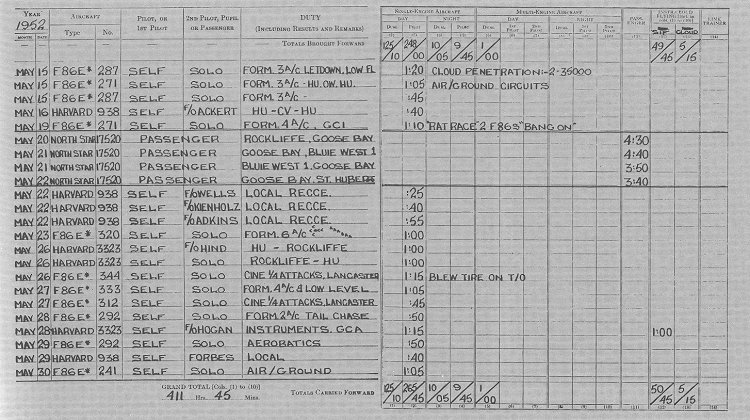 YEAR 1952 AIRCRAFT PILOT, OR 1ST PILOT 2ND PILOT, PUPIL OR PASSENGER DUTY (INCLUDING RESULTS AND REMARKS) SINGLE-ENGINE AIRCRAFT MULTI-ENGINE AIRCRAFT PASSENGER LINK TRAINER
MONTH DATE Type No. DAY NIGHT DAY NIGHT SIF CLOUD
TOTALS BROUGHT FORWARD 125/10 248/00 10/05 9/45 1/00 49/45 5/15
MAY 15 F86E* 287 SELF SOLO FORM. 3 A/C LETDOWN, LOW FL 1:20 CLOUD PENETRATION:-2-35000
MAY 15 F86E* 271 SELF SOLO FORM. 3 A/C -HU. OW. HU. 1:05 AIR/GROUND CIRCUITS
MAY 15 F86E* 287 SELF SOLO FORM. 3 A/C - :45
MAY 16 HARVARD 938 SELF F/O ACKERT HU-CV-HU :40
MAY 19 F86E* 271 SELF SOLO FORM. 4 A/C, GCI 1:10 "RAT RACE" 2 F86S "BANG ON"
MAY 20 NORTH STAR 17520 PASSENGER ROCKLIFFE, GOOSE BAY 4:30
MAY 21 NORTH STAR 17520 PASSENGER GOOSE BAY, BLUIE WEST 1 4:40
MAY 21 NORTH STAR 17520 PASSENGER BLUIE WEST 1. GOOSE BAY 3:50
MAY 22 NORTH STAR 17520 PASSENGER GOOSE BAY. ST. HUBERT 3:40
MAY 22 HARVARD 938 SELF F/O WELLS LOCAL RECCE. :25
MAY 22 HARVARD 938 SELF F/O KIENHOLZ LOCAL RECCE. :40
MAY 22 HARVARD 938 SELF F/O ADKINS LOCAL RECCE. :55
MAY 23 F86E* 320 SELF SOLO FORM. 6 A/C 1:00
MAY 26 HARVARD 3323 SELF F/O HIND HU - ROCKLIFFE 1:00
MAY 26 HARVARD 3323 SELF SOLO ROCKLIFFE - HU 1:00
MAY 26 F86E* 344 SELF SOLO CINE 1/4 ATTACKS, LANCASTER 1:15 BLEW TIRE ON T/O
MAY 27 F86E* 333 SELF SOLO FORM. 4 A/C & LOW LEVEL 1:05
MAY 27 F86E* 312 SELF SOLO CINE 1/4 ATTACKS, LANCASTER :45
MAY 28 F86E* 292 SELF SOLO FORM. 2 A/C TAIL CHASE :50
MAY 28 HARVARD 3323 SELF F/O HOGAN INSTRUMENTS. GCA 1:15 1:00
MAY 29 F86E* 292 SELF SOLO AEROBATICS :50
MAY 29 HARVARD 938 SELF FORBES LOCAL :40
MAY 30 F86E* 241 SELF SOLO AIR/GROUND 1:05
GRAND TOTAL [Cols. (1) to (10)] 411 Hrs. 45 Mins. TOTALS CARRIED FORWARD 125/10 265/45 10/05 9/45 1/00 50/45 5/15